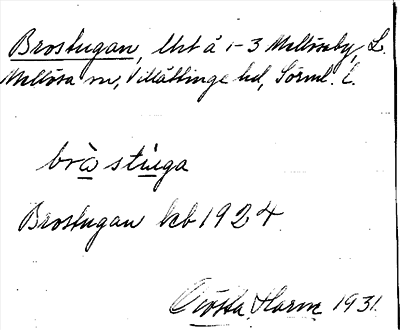 Brostugan, lht å 1-3 Mellösaby, L.
Mellösa sn, Villåttinge hd, Sörml. l.
bròstùga
Brostugan kb 1924
Gösta Harm 1931.